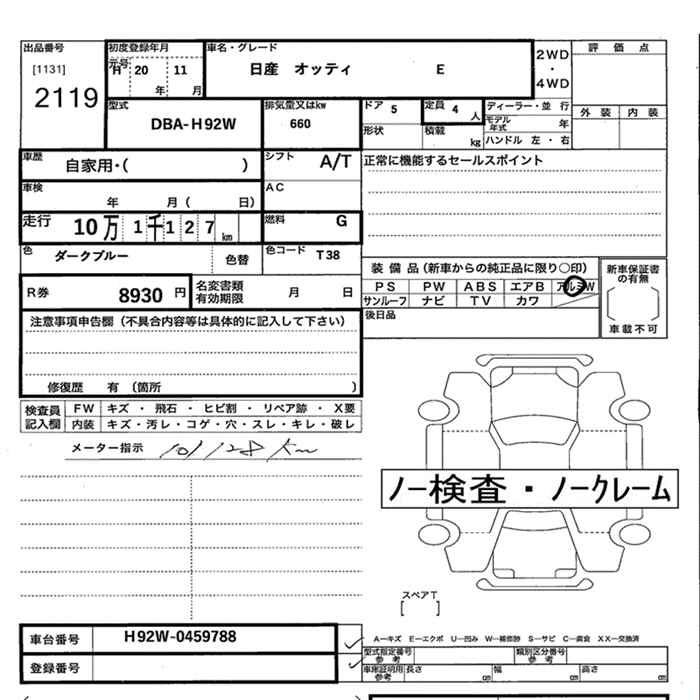 出品番号
[1131]
2119
初度登録年月
元号 H 20 11
年 月
車名・グレード
日産 オッティ E
2WD
・
4WD
評 価 点
外 装 内 装
型式
DBA-H92W
排気量又はkw
660
ドア 5
定員 4 人
ディーラー・並 行
モデル年式 年
形状
積載 kg
ハンドル 左 ・ 右
車歴
自家用・( )
シフト
A/T
正常に機能するセールスポイント
車検
年 月 ( 日)
AC
走行
10万 1千127 km
燃料
G
色
ダークブルー 色替
色コード T38
R券
8930 円
名変書類
有効期限 月 日
装 備 品 (新車からの純正品に限り〇印)
PS PW ABS エアB アルミW
サンルーフ ナビ TV カワ
後日品
新車保証書
の有無
車載不可
注意事項申告欄 (不具合内容等は具体的に記入して下さい)
修復歴 有 (箇所 )
検査員
記入欄
FW キズ ・ 飛石 ・ ヒビ割 ・ リペア跡 ・ X要
内装 キズ・汚レ・コゲ・穴・スレ・キレ・破レ
メーター指示 101128 km
ノー検査・ノークレーム
スペアT
[ ]
車台番号
H92W-0459788
登録番号
A―キズ E―エクボ U―凹み W―補修跡 S―サビ C―腐食 XX―交換済
型式指定番号
参 考
類別区分番号
参 考
車庫証明用
参考
長さ ㎝ 幅 ㎝ 高さ ㎝